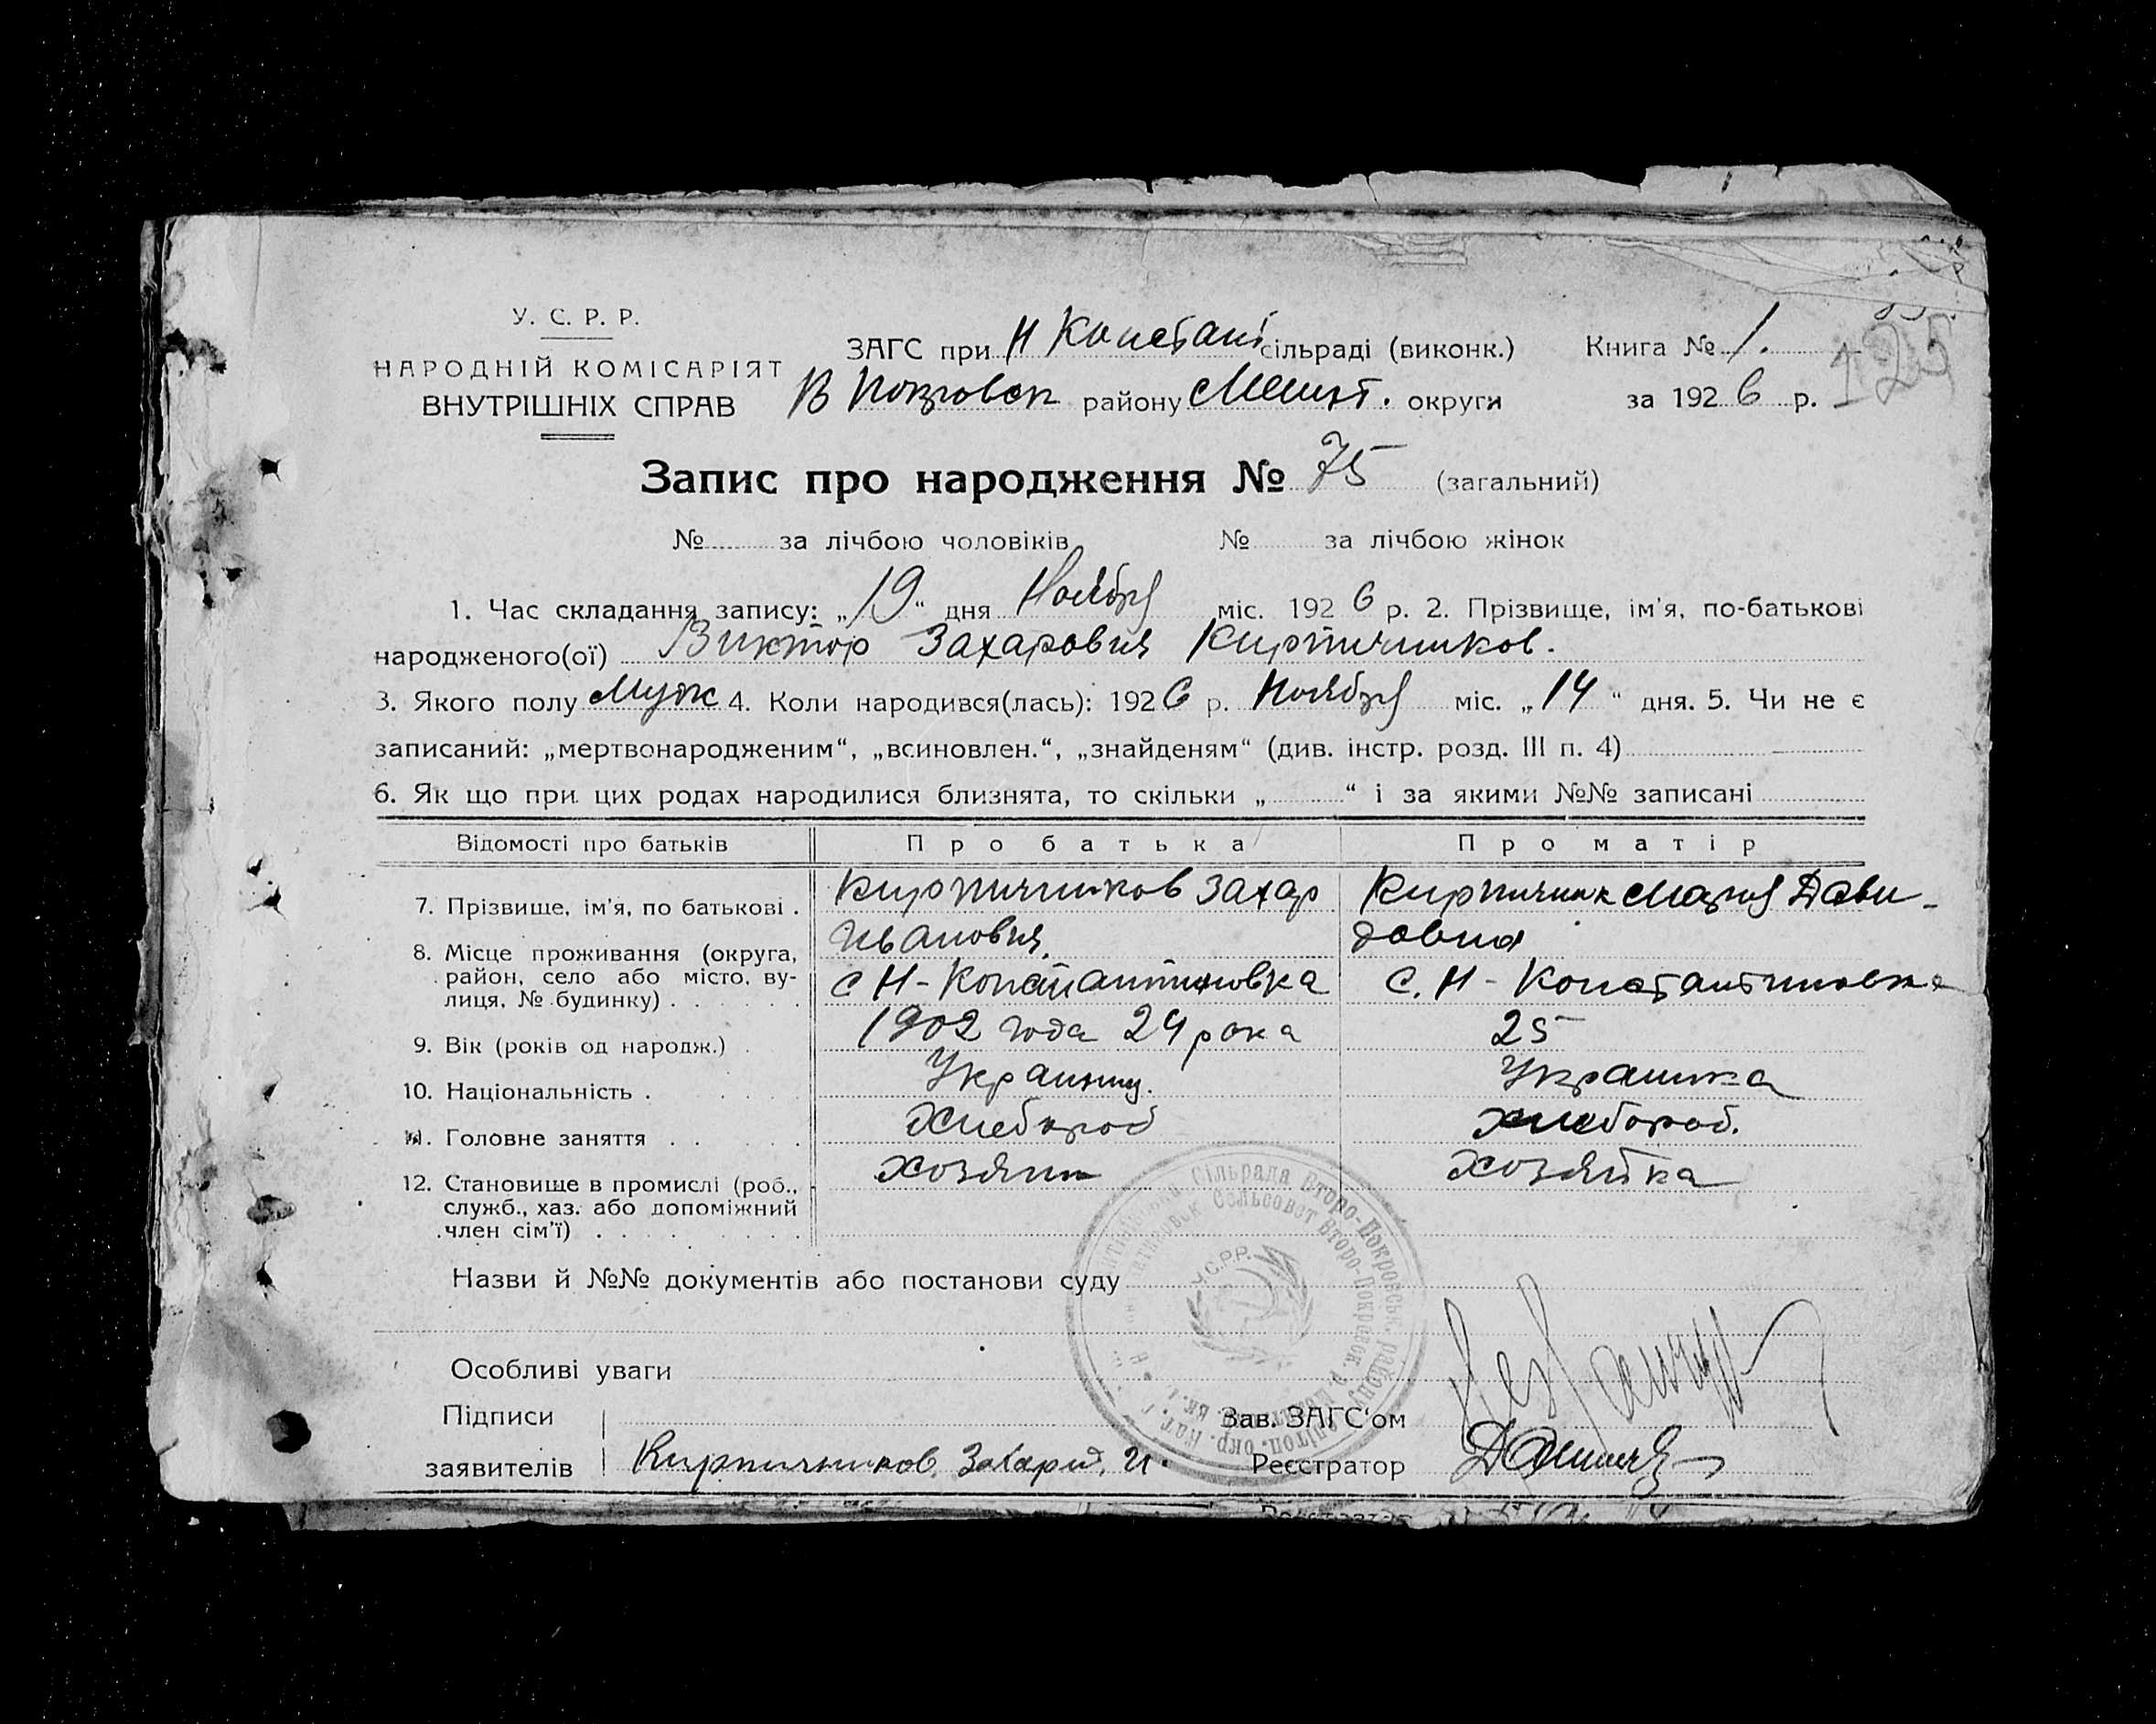 У. С. Р. Р.
НАРОДНІЙ КОМІСАРІЯТ
ВНУТРІШНІХ СПРАВ
ЗАГС при Н Констант сільраді (виконк.) Книга № 1.
В Покровск району Мелит. округи за 1926 р.
125
Запис про народження № 75 (загальний)
№ за лічбою чоловіків № за лічбою жінок
1. Час складання запису: „19“ дня Ноября міс. 1926 р. 2. Прізвище, ім'я, по-батькові
народженого(ої) Виктор Захарович Кирпичников.
3. Якого полу Муж 4. Коли народився(лась): 1926 р. Ноября міс. „14“ дня. 5. Чи не є
записаний: „мертвонародженим“, „всиновлен.“, „знайденям“ (див. інстр. розд. III п. 4)
6. Як що при цих родах народилися близнята, то скільки „ “ і за якими №№ записані
Відомості про батьків Про батька Про матір
7. Прізвище, ім'я, по батькові . Кирпичников Захар Иванович. Кирпичник Мария Дави-довна
8. Місце проживання (округа, район, село або місто, ву-лиця, № будинку) . с Н-Константиновка с. Н-Константиновка
9. Вік (років од народж.) . 1902 года 24 рока 25
10. Національність . Украинец. Украинка
11. Головне заняття . . Хлебороб хлебороб.
12. Становище в промислі (роб., служб., хаз. або допоміжний член сім'ї) . хозяин хозяйка
Назви й №№ документів або постанови суду
Сільрада Второ-Покровськ. району
Сельсовет Второ-Покровск. р.
У.С.Р.Р.
Особливі уваги
Підписи
заявителів Кирпичников, Захарий, И.
Зав. ЗАГС'ом
Реєстратор